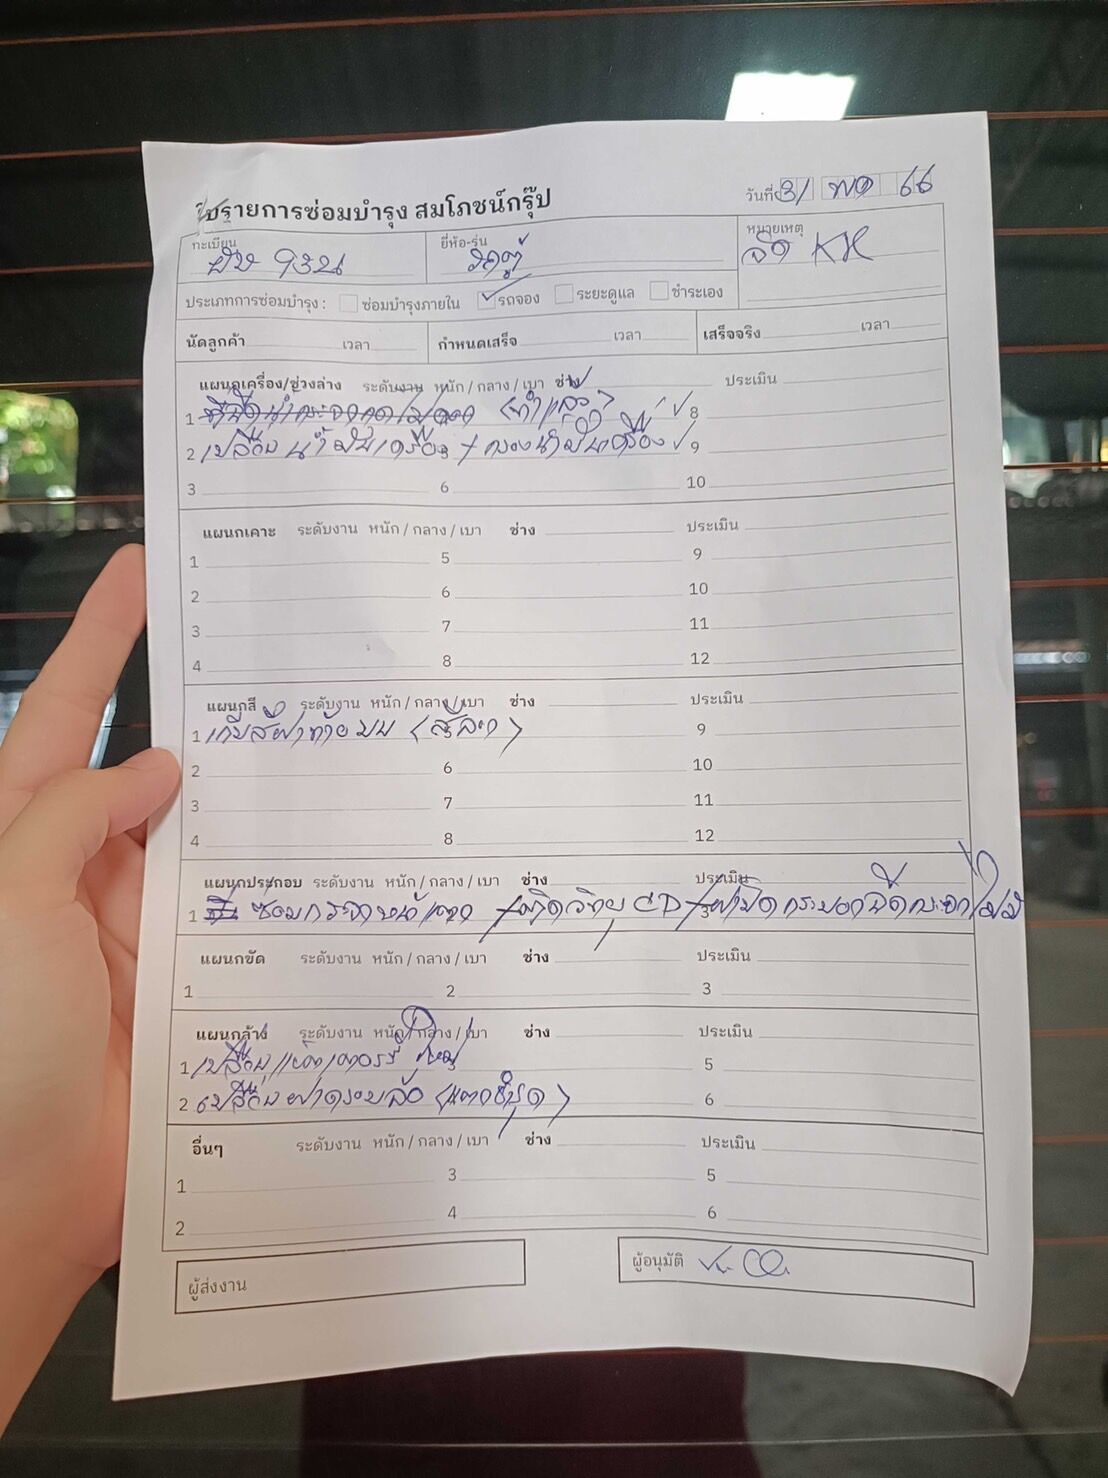 ใบรายการซ่อมบำรุง สมโภชน์กรุ๊ป
วันที่ 31 พค 66
ทะเบียน ยี่ห้อ-รุ่น รถตู้ หมายเหตุ
ประเภทการซ่อมบำรุง : ซ่อมบำรุงภายใน รถจอง ระยะดูแล ชำระเอง
นัดลูกค้า เวลา กำหนดเสร็จ เวลา เสร็จจริง เวลา
แผนกเครื่อง/ช่วงล่าง ระดับงาน หนัก / กลาง / เบา ช่าง ประเมิน
1 ที่ฉีดน้ำกระจก (ทำแล้ว) 8
2 เปลี่ยนน้ำมันเครื่อง + กรองน้ำมันเครื่อง 9
3 6 10
แผนกเคาะ ระดับงาน หนัก / กลาง / เบา ช่าง ประเมิน
1 5 9
2 6 10
3 7 11
4 8 12
แผนกสี ระดับงาน หนัก / กลาง / เบา ช่าง ประเมิน
1 เก็บสีฝาท้ายบน 9
2 6 10
3 7 11
4 8 12
แผนกประกอบ ระดับงาน หนัก / กลาง / เบา ช่าง ประเมิน
1 ซ่อมกระจกหน้าแตก วิทยุ CD 3
แผนกขัด ระดับงาน หนัก / กลาง / เบา ช่าง ประเมิน
1 2 3
แผนกล้าง ระดับงาน หนัก / กลาง / เบา ช่าง ประเมิน
1 เปลี่ยนแบตเตอร์รี่ใหม่ 5
2 เปลี่ยนฝาครอบล้อ (แตกชำรุด) 6
อื่นๆ ระดับงาน หนัก / กลาง / เบา ช่าง ประเมิน
1 3 5
2 4 6
ผู้ส่งงาน ผู้อนุมัติ